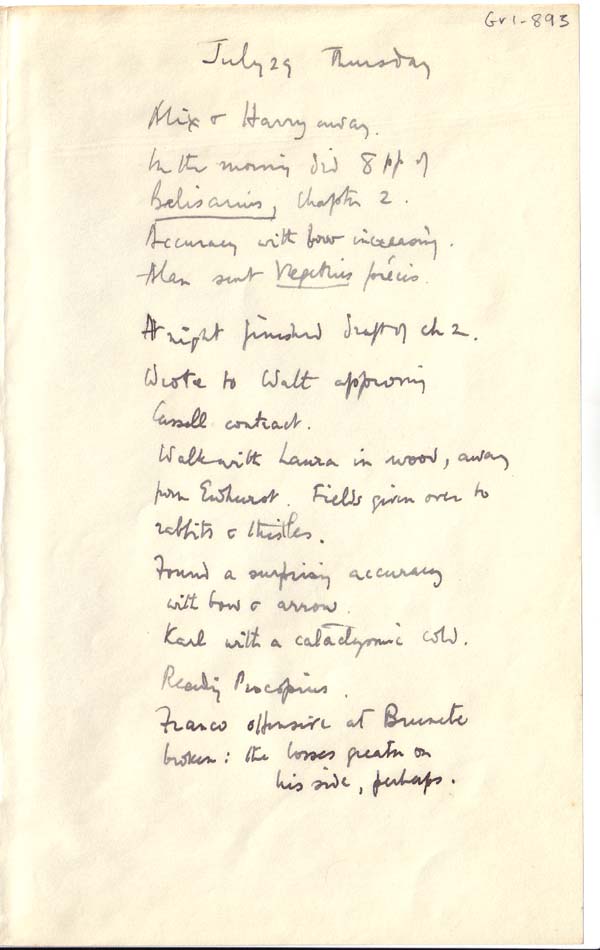 Gr1-893
July 29 Thursday
Alix & Harry away.
In the morning did 8 pp of
Belisarius, Chapter 2.
Accuracy with bow increasing.
Alan sent Vegetius précis.
At night finished draft of ch 2.
Wrote to Watt approving
Cassell contract.
Walk with Laura in wood, away
from Ewhurst. Fields given over to
rabbits & thistles.
Found a surprising accuracy
with bow & arrow.
Karl with a cataclysmic cold.
Reading Procopius.
Franco offensive at Brunete
broken: the losses greater on
his side, perhaps.